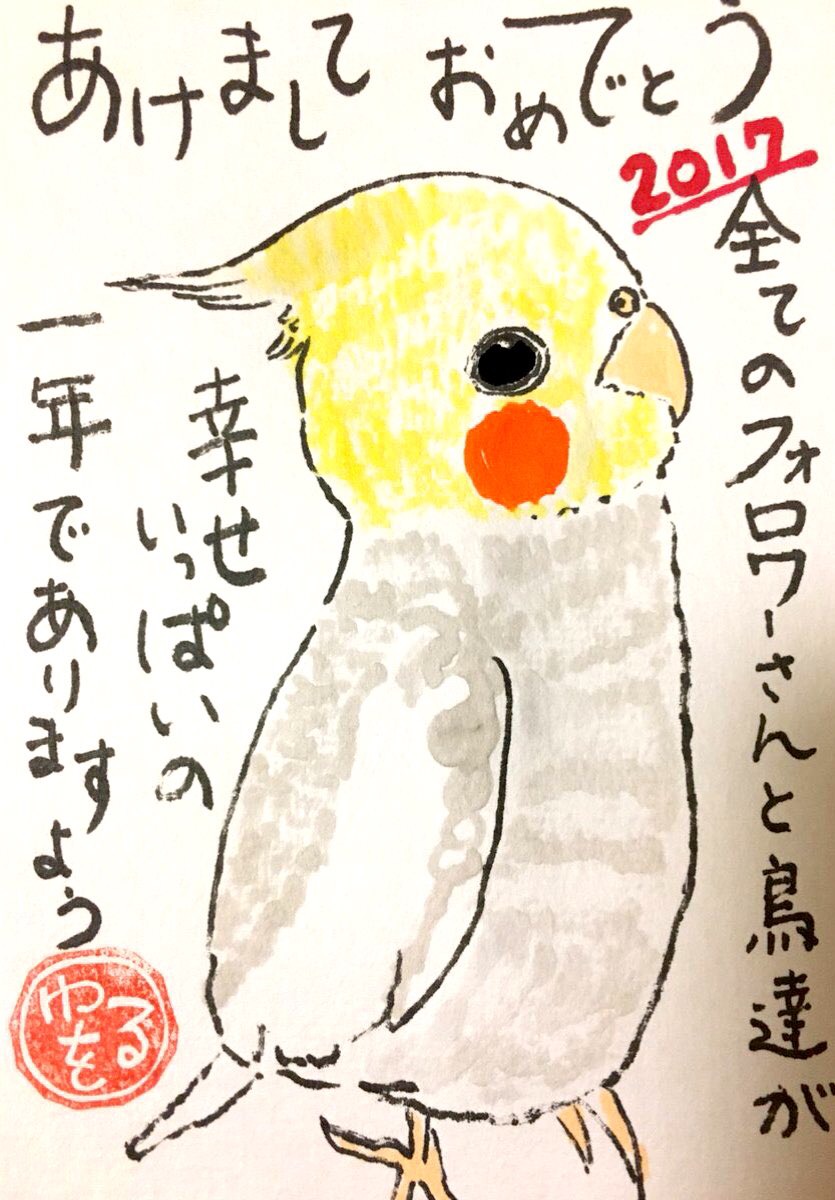 あけまして おめでとう
2017
全てのフォロワーさんと鳥達が
幸せ
いっぱいの
一年でありますよう
ゆるを